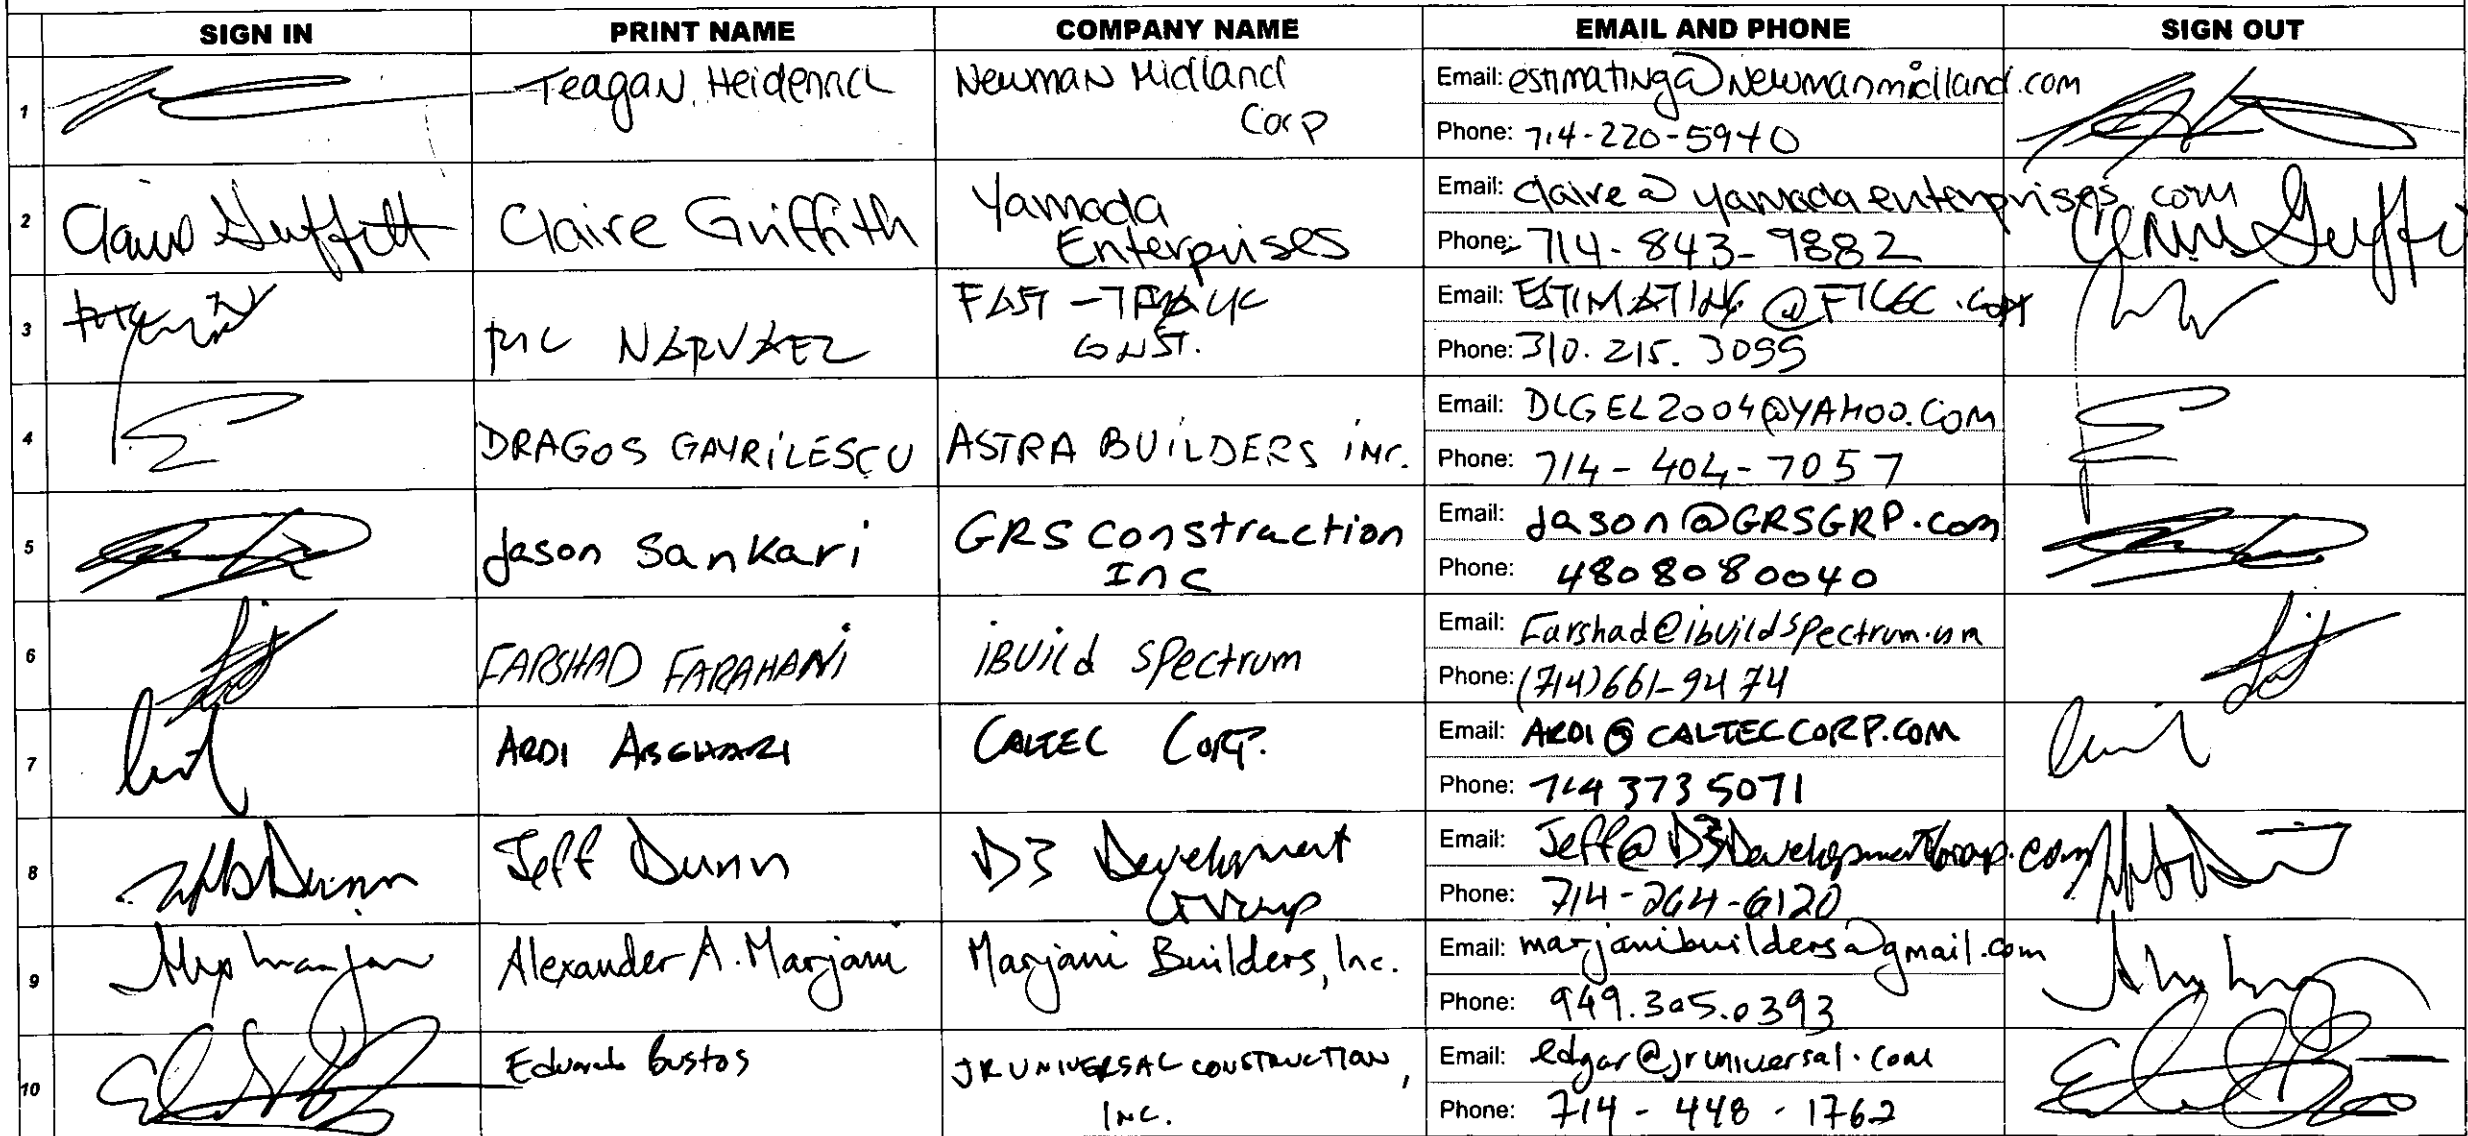 SIGN IN PRINT NAME COMPANY NAME EMAIL AND PHONE SIGN OUT
1 Teagan Newman Midland Email: estimating@Newmanmidland.com
Corp Phone: 714-220-5940
2 Claire Griffith Claire Griffith Yamada Email: claire@yamadaenterprises.com Claire Griffith
Enterprises Phone: 714-843-9882
3 NARVAEZ FAST-TRACK Email: ESTIMATING
CONST. Phone: 310.215.3055
4 DRAGOS GAVRILESCU ASTRA BUILDERS INC. Email: DLGEL2004@YAHOO.COM
Phone: 714-404-7057
5 Jason Sankari GRS Construction Email: Jason@GRSGRP.com
Inc Phone: 4808080040
6 FARSHAD FARAHANI iBUILD SPectrum Email: Farshad@ibuildspectrum.com
Phone: (714)661-9474
7 ARDI ABGHARI CALTEC CORP. Email: ARDI@CALTECCORP.COM
Phone: 714 373 5071
8 Jeff Dunn D3 Development Email:
Group Phone: 714-264-6120
9 Alexander A. Marjani Marjani Builders, Inc. Email: marjanibuilders@gmail.com
Phone: 949.305.0393
10 Eduardo Bustos JR UNIVERSAL CONSTRUCTION, Email: edgar@jruniversal.com
INC. Phone: 714-448-1762